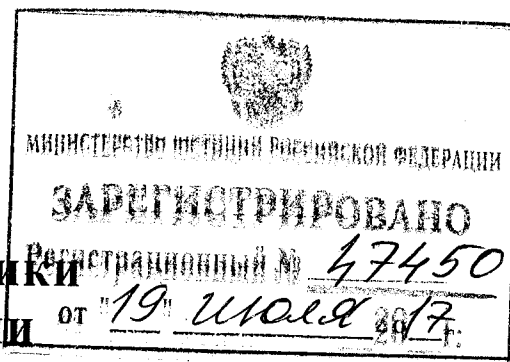 МИНИСТЕРСТВО ЮСТИЦИИ РОССИЙСКОЙ ФЕДЕРАЦИИ
ЗАРЕГИСТРИРОВАНО
Регистрационный № 47450
от "19" июля 2017 г.
ики
и